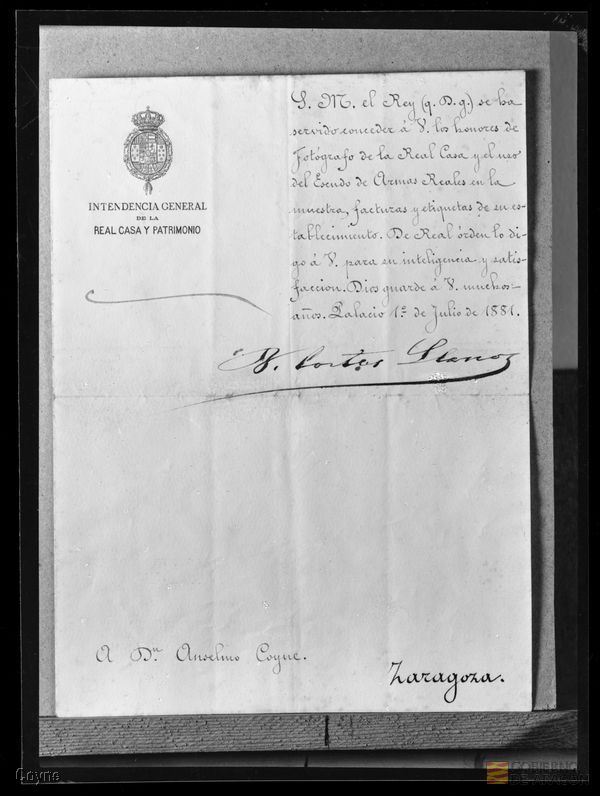 INTENDENCIA GENERAL
DE LA
REAL CASA Y PATRIMONIO
S. M. el Rey (q. D. g.) se ha
servido conceder á V. los honores de
Fotógrafo de la Real Casa y el uso
del Escudo de Armas Reales en la
muestra, facturas y etiquetas de su es-
tablecimiento. De Real órden lo di-
go á V. para su inteligencia y satis-
faccion. Dios guarde á V. muchos
años. Palacio 1.º de Julio de 1881.
Cortes Llanos
A Dn. Anselmo Coyne.
Zaragoza.
Coyne
GOBIERNO
DE ARAGON